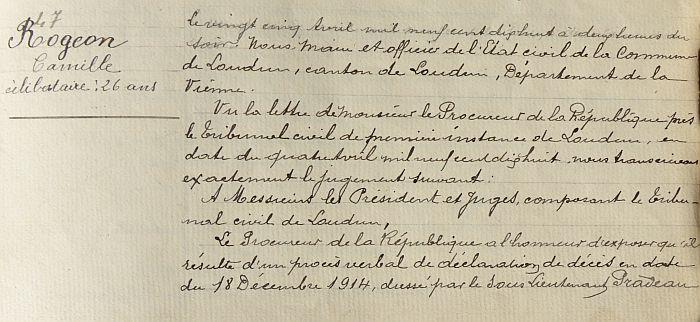 47
Rogeon
Camille
célibataire; 26 ans
le vingt cinq Avril mil neuf cent diphuit à deux heures du
soir. Nous Maire et officier de l'Etat civil de la Commune
de Loudun, canton de Loudun, Département de la
Vienne.
Vu la lettre de Monsieur le Procureur de la République près
le Tribunal civil de première instance de Loudun, en
date du quatre Avril mil neuf cent diphuit, nous transcrivons
exactement le jugement suivant:
A Messieurs les Président et Juges, composant le Tribu-
nal civil de Loudun,
Le Procureur de la République a l'honneur d'exposer qu'il
résulte d'un procès verbal de déclaration de décès en date
du 18 Décembre 1914, dressé par le Sous Lieutenant Pradeau